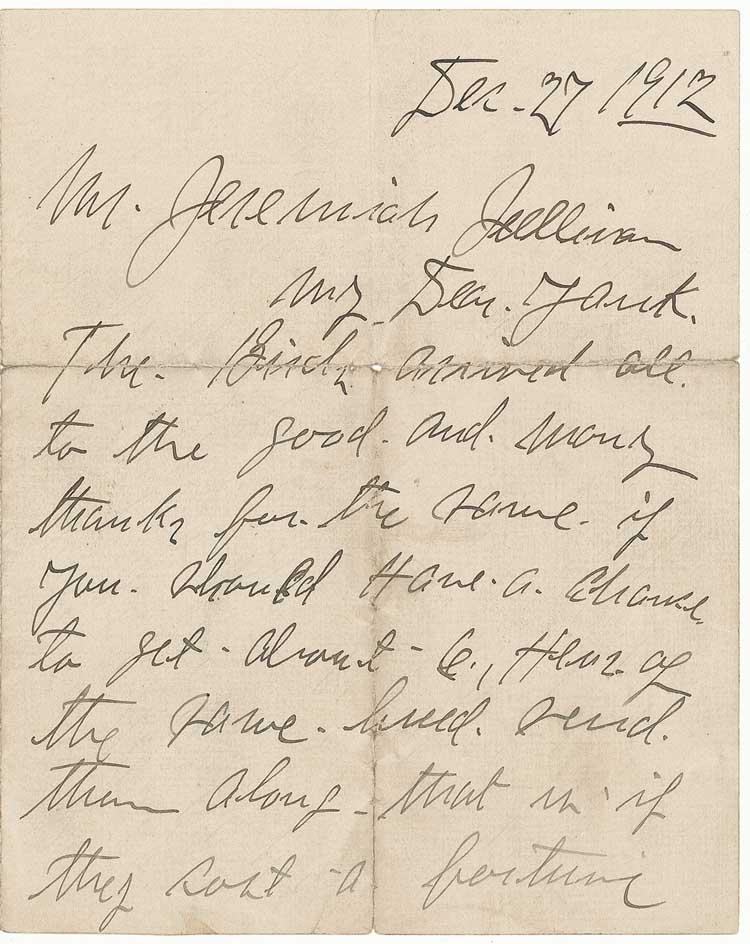 Dec. 27 1912
Mr. Jeremiah Sullivan
My Dear. Yank.
The. Birds arrived all.
to the good. and. many
thanks for. the same. if
you. should Have. a. chance.
to get - about - 6, Hens. of
the same. breed. send.
them along - that is if
they cost a fortune